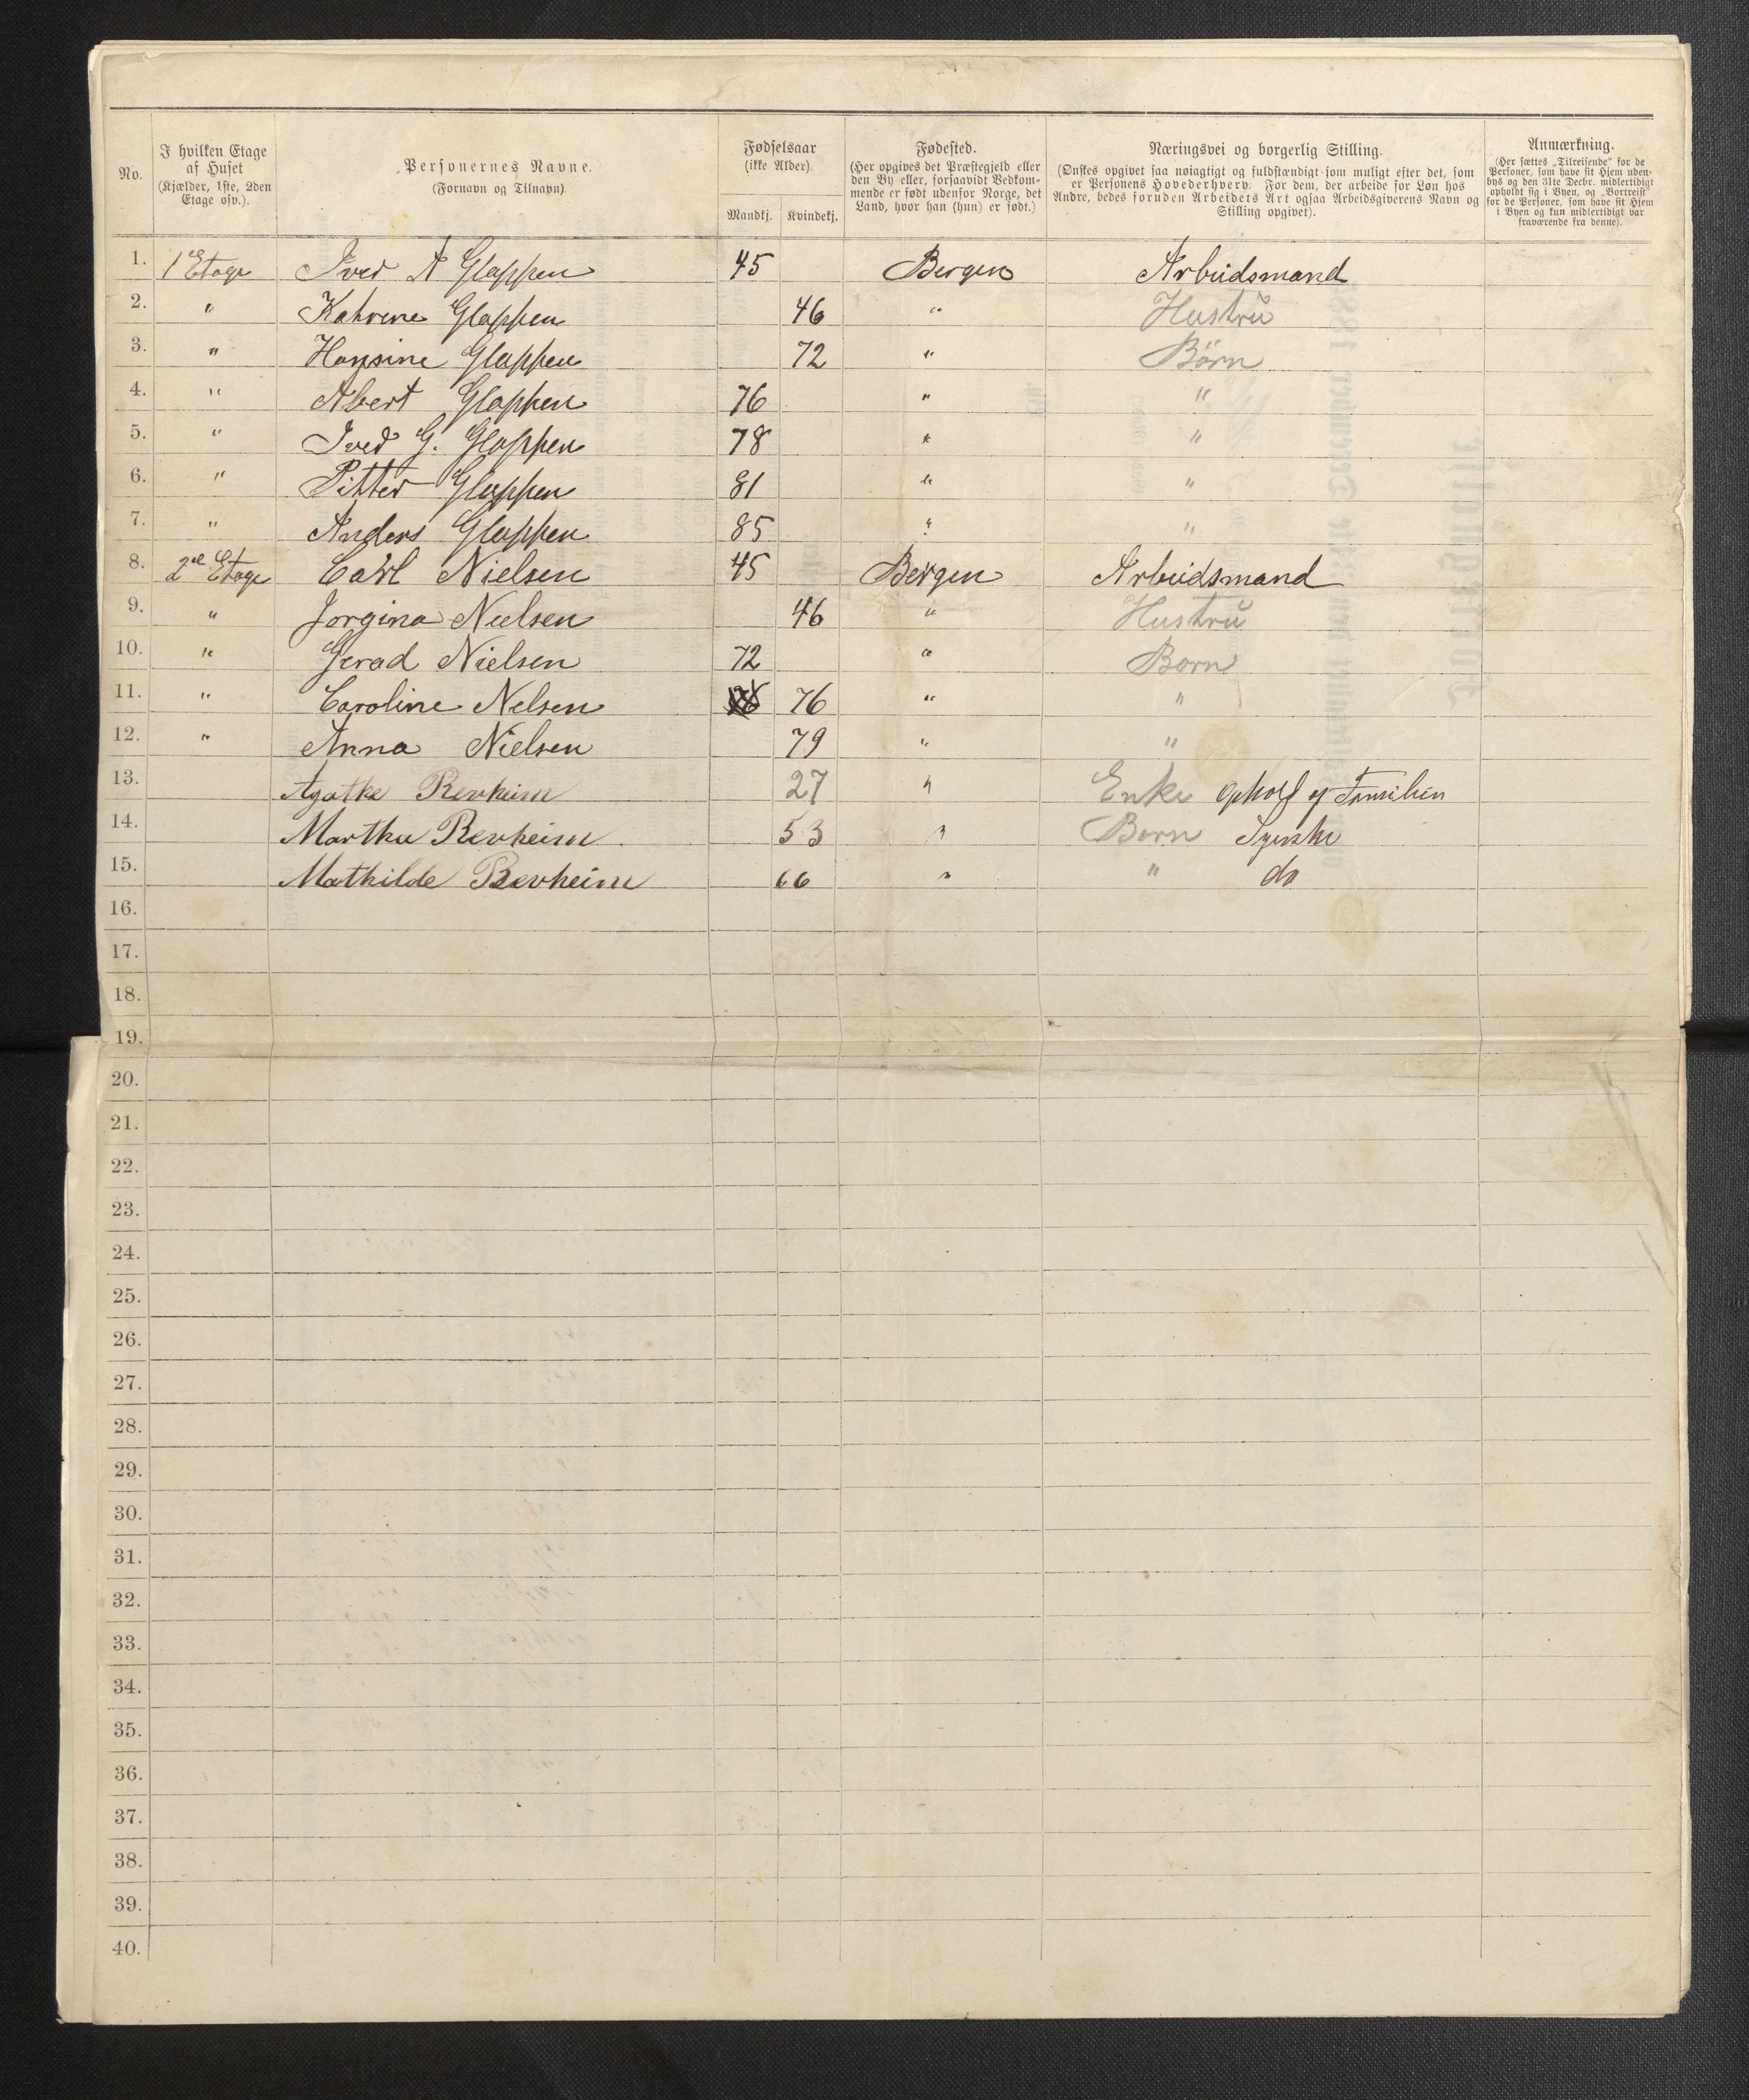 No.
I hvilken Etage
af Huset
(Kjælder, 1ste, 2den
Etage osv.).
Personernes Navne.
(Fornavn og Tilnavn).
Fødselsaar
(ikke Alder).
Mandkj. Kvindekj.
Fødested.
(Her opgives det Præstegjeld eller
den By eller, forsaavidt Vedkom-
mende er født udenfor Norge, det
Land, hvor han (hun) er født.)
Næringsvei og borgerlig Stilling.
(Ønskes opgivet saa nøiagtigt og fuldstændigt som muligt efter det, som
er Personens Hovederhverv. For dem, der arbeide for Løn hos
Andre, bedes foruden Arbeidets Art ogsaa Arbeidsgiverens Navn og
Stilling opgivet).
Anmærkning.
(Her sættes „Tilreisende“ for de
Personer, som have sit Hjem uden-
bys og den 31te Decbr. midlertidigt
opholdt sig i Byen, og „Bortreist“
for de Personer, som have sit Hjem
i Byen og kun midlertidigt var
fraværende fra denne).
1. 1 Etage Iver A Gloppen 45 Bergen Arbeidsmand
2. " Kahrene Gloppen 46 " Hustru
3. " Hansine Gloppen 72 " Börn
4. " Albert Gloppen 76 " "
5. " Iver G. Gloppen 78 " "
6. " Pitter Gloppen 81 " "
7. " Anders Gloppen 85 " "
8. 2de Etage Carl Nielsen 45 Bergen Arbeidsmand
9. " Jorgina Nielsen 46 " Hustru
10. " Gerad Nielsen 72 " Born
11. " Caroline Nelsen 76 " "
12. " Anna Nielsen 79 " "
13. Agathe Revheim 27 " Enke Ophold af Familien
14. Martha Revheim 53 " Born Syerske
15. Mathilde Revheim 66 " " do
16.
17.
18.
19.
20.
21.
22.
23.
24.
25.
26.
27.
28.
29.
30.
31.
32.
33.
34.
35.
36.
37.
38.
39.
40.